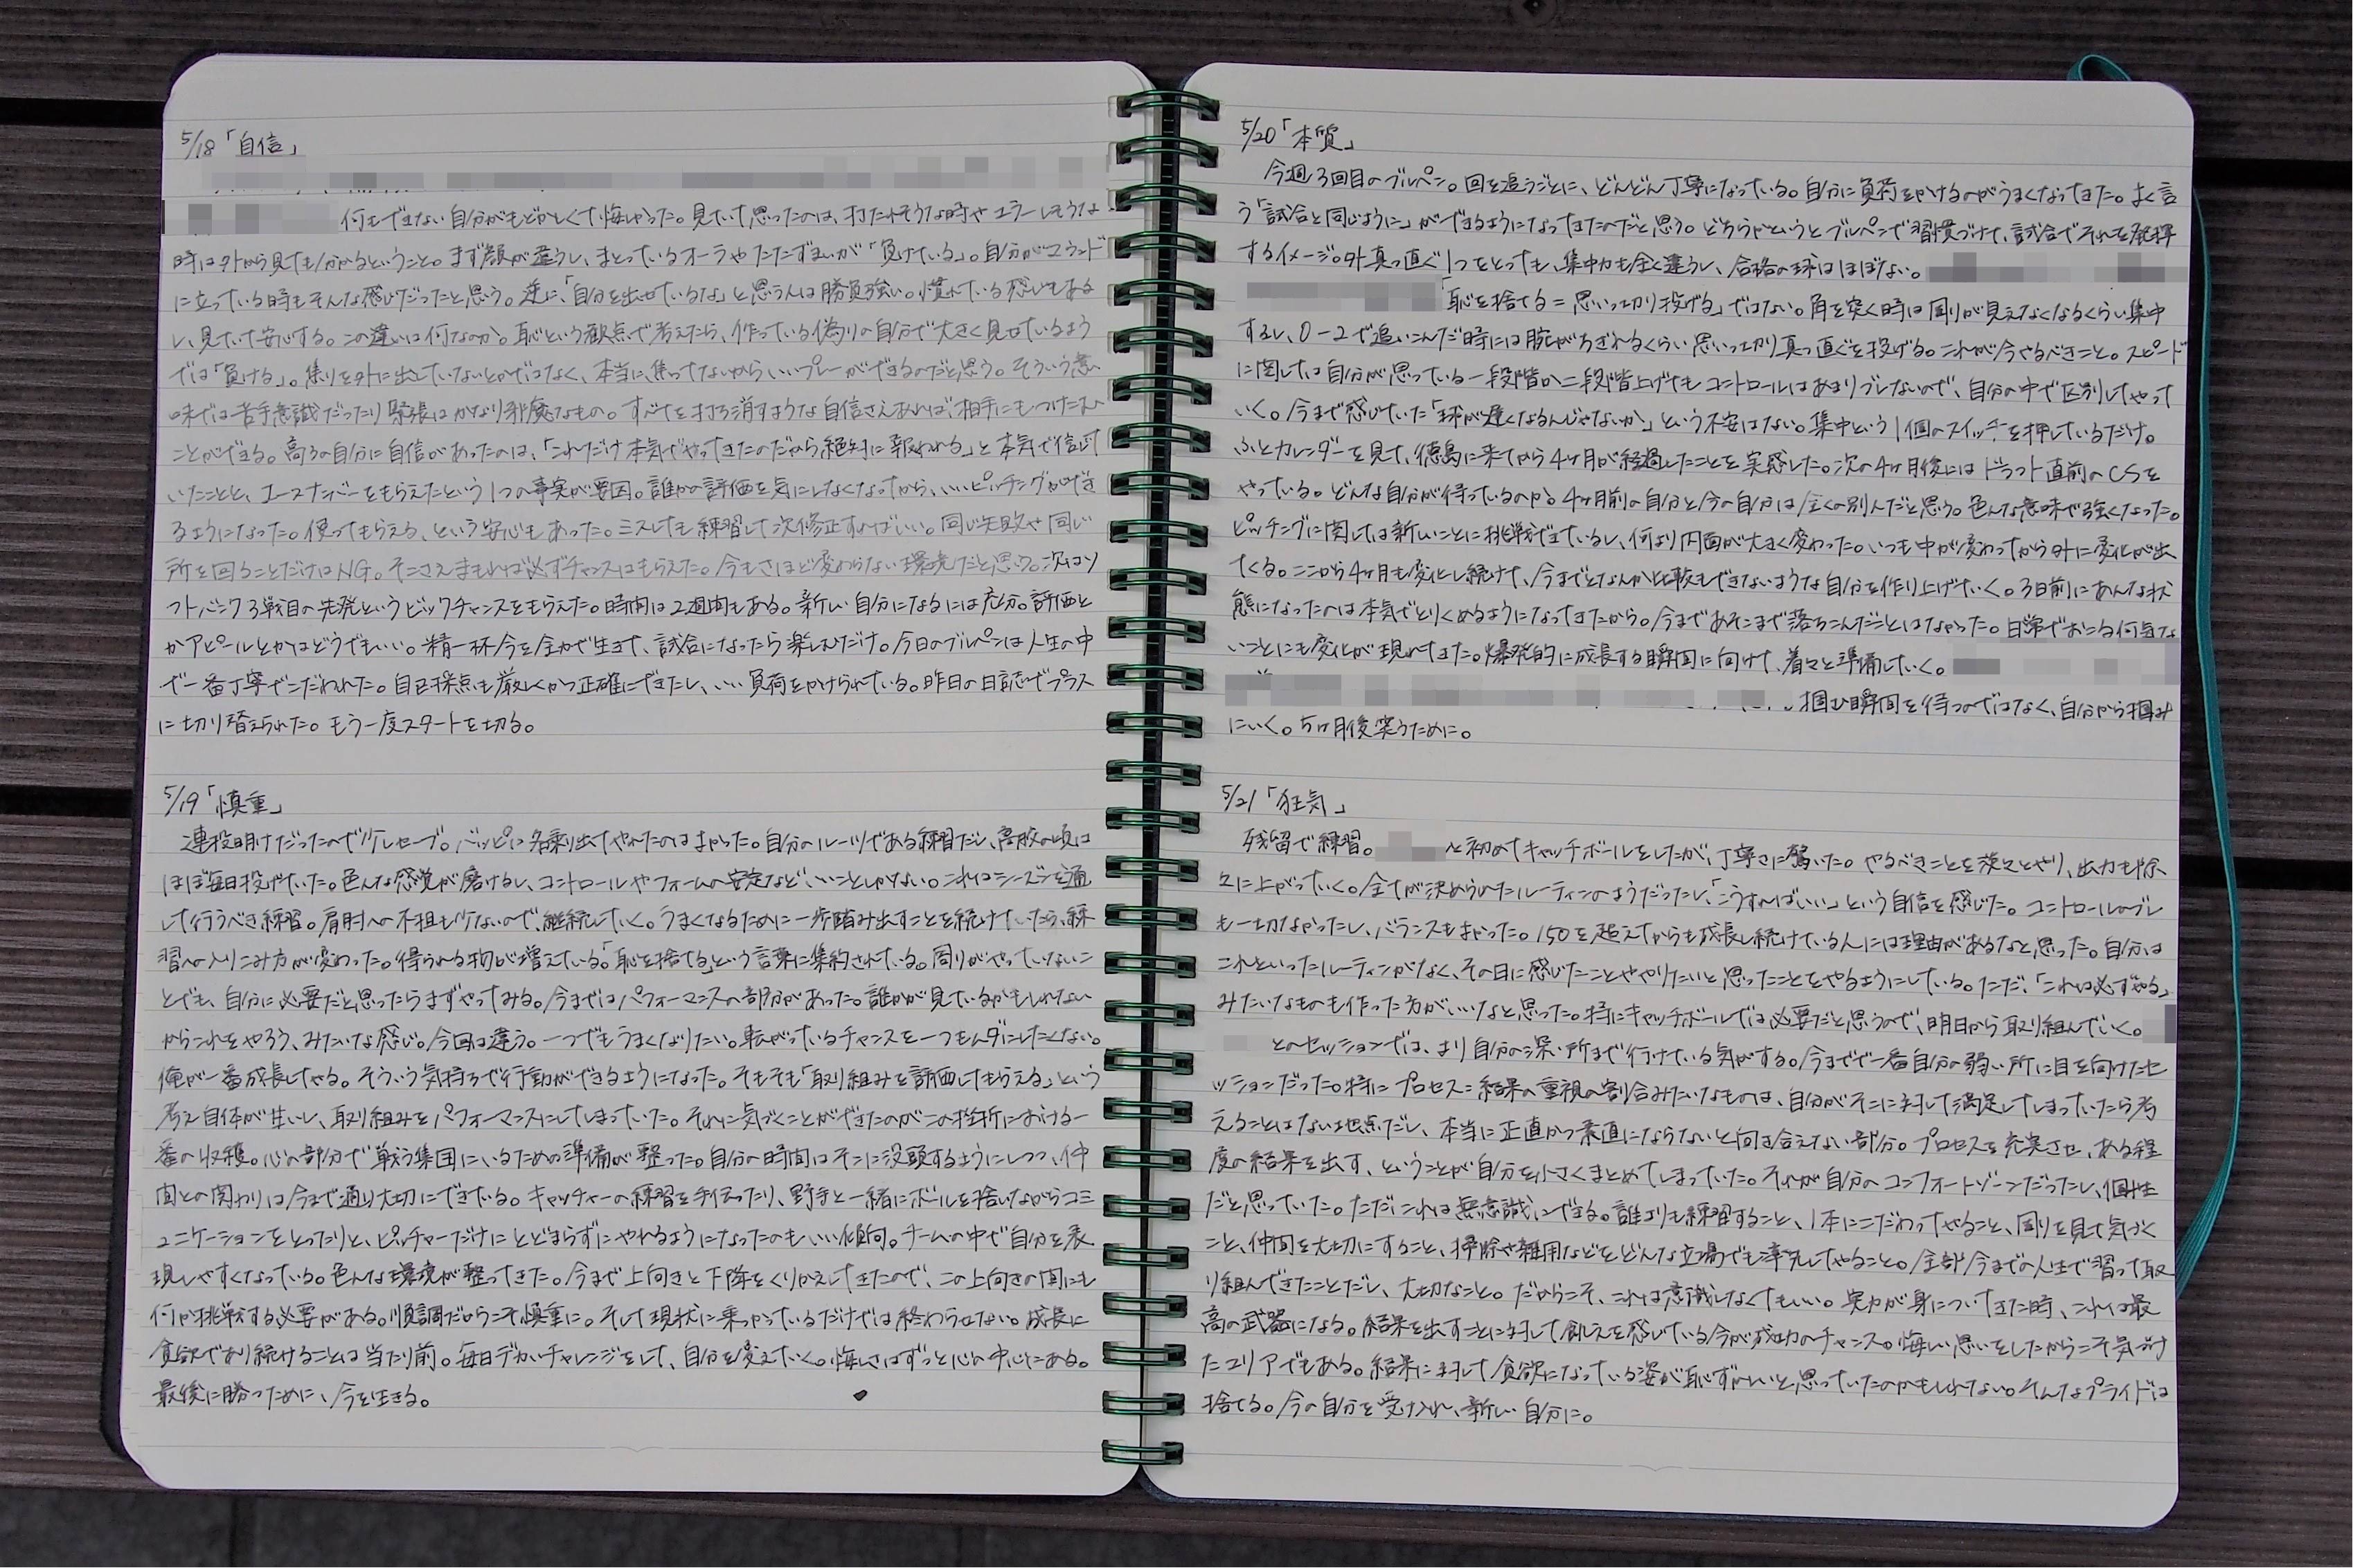 5/18「自信」
何もできない自分がもどかしくて悔しかった。見ていて思ったのは、打たれそうな時やエラーしそうな
時は外から見ても分かるということ。まず顔が違うし、まとっているオーラやたたずまいが「負けている」。自分がマウンド
に立っている時もそんな感じだったと思う。逆に、「自分を出せているな」と思う人は勝負強い。慣れている感じもある
し、見ていて安心する。この違いは何なのか。恥という観点で考えたら、作っている偽りの自分で大きく見せているよう
では「負ける」。焦りを外に出していないとかではなく、本当に焦ってないからいいプレーができるのだと思う。そういう意
味では苦手意識だったり緊張はかなり邪魔なもの。すべてを打ち消すような自信さえあれば相手にもつけこむ
ことができる。高3の自分に自信があったのは、「これだけ本気でやってきたのだから絶対に報われる」と本気で信じて
いたことと、エースナンバーをもらえたという1つの事実が要因。誰かの評価を気にしなくなってから、いいピッチングができ
るようになった。使ってもらえる、という安心もあった。ミスしても練習して次修正すればいい。同じ失敗や同じ
所を回ることだけはNG。そこさえまもれば必ずチャンスはもらえた。今もさほど変わらない環境だと思う。次はソ
フトバンク3戦目の先発というビックチャンスをもらえた。時間は2週間もある。新しい自分になるには充分。評価と
かアピールとかはどうでもいい。精一杯今を全力で生きて、試合になったら楽しむだけ。今日のブルペンは人生の中
で一番丁寧でこだわれた。自己採点も厳しくかつ正確にできたし、いい負荷をかけられている。昨日の日誌でプラス
に切り替えられた。もう一度スタートを切る。
5/19「慎重」
連投明けだったので少しセーブ。バッピに名乗り出てやれたのはよかった。自分のルーツである練習だし、高校の頃は
ほぼ毎日投げていた。色んな感覚が磨けるし、コントロールやフォームの安定など、いいことしかない。これはシーズンを通
して行うべき練習。肩肘への不担も少ないので、継続していく。うまくなるために一歩踏み出すことを続けていたら、練
習への入りこみ方が変わった。得られる物が増えている。「恥を捨てる」という言葉に集約されている。周りがやっていないこ
とでも、自分に必要だと思ったらまずやってみる。今まではパフォーマンスの部分があった。誰かが見ているかもしれない
からこれをやろう、みたいな感じ。今回は違う。一つでもうまくなりたい。転がっているチャンスを一つもムダにしたくない。
俺が一番成長してやる。そういう気持ちで行動ができるようになった。そもそも「取り組みを評価してもらえる」という
考え自体が甘いし、取り組みをパフォーマンスにしてしまっていた。それに気づくことができたのがこの挫折における一
番の収穫。心の部分で戦う集団にいるための準備が整った。自分の時間はそこに没頭するようにしつつ、仲
間との関わりは今まで通り大切にできている。キャッチャーの練習を手伝ったり、野手と一緒にボールを捨いながらコミ
ュニケーションをとったりと、ピッチャーだけにとどまらずにやれるようになったのもいい傾向。チームの中で自分を表
現しやすくなっている。色んな環境が整ってきた。今まで上向きと下降をくりかえしてきたので、この上向きの間にも
何か挑戦する必要がある。順調だからこそ慎重に。そして現状に乗かっているだけでは終わらせない。成長に
貪欲であり続けることは当たり前。毎日デカいチャレンジをして、自分を変えていく。悔しさはずっと心の中心にある。
最後に勝つために、今を生きる。
5/20「本質」
今週3回目のブルペン。回を追うごとに、どんどん丁寧になっている。自分に負荷をかけるのがうまくなってきた。よく言
う「試合と同じように」ができるようになってきたのだと思う。どちらかというとブルペンで習慣づけて、試合でそれを発揮
するイメージ。外真っ直ぐ1つをとっても、集中力も全く違うし、合格の球はほぼない。
「恥を捨てる=思いっ切り投げる」ではない。角を突く時は周りが見えなくなるくらい集中
するし、0-2で追いこんだ時には腕がちぎれるくらい思いっ切り真っ直ぐを投げる。これが今やるべきこと。スピード
に関しては自分が思っている一段階か二段階上げてもコントロールはあまりブレないので、自分の中で区別してやって
いく。今まで感じていた「球が遅くなるんじゃないか」という不安はない。集中という1個のスイッチを押しているだけ。
ふとカレンダーを見て、徳島に来てから4ヶ月が経過したことを実感した。次の4ヶ月後にはドラフト直前のCSを
やっている。どんな自分が待っているのか。4ヶ月前の自分と今の自分は全くの別人だと思う。色んな意味で強くなった。
ピッチングに関しては新しいことに挑戦できているし、何より内面が大きく変わった。いつも中が変わってから外に変化が出
てくる。ここから4ヶ月も変化し続けて、今までとなんか比較もできないような自分を作り上げていく。3日前にあんな状
態になったのは本気でとりくめるようになってきたから。今まであそこまで落ちこんだことはなかった。日常でおこる何気な
いことにも変化が現れてきた。爆発的に成長する瞬間に向けて、着々と準備していく。
掴む瞬間を待つのではなく、自分から掴み
にいく。5ヶ月後笑うために。
5/21「狂気」
残留で練習。と初めてキャッチボールをしたが、丁寧さに驚いた。やるべきことを淡々とやり、出力も徐
々に上がっていく。全てが決められたルーティンのようだったし、「こうすればいい」という自信を感じた。コントロールのブレ
も一切なかったし、バランスもよかった。150を超えてからも成長し続けている人には理由があるなと思った。自分は
これといったルーティンがなく、その日に感じたことややりたいと思ったことをやるようにしている。ただ、「これは必ずやる」
みたいなものも作った方がいいなと思った。特にキャッチボールでは必要だと思うので、明日から取り組んでいく。
とのセッションでは、より自分の深い所まで行けている気がする。今までで一番自分の弱い所に目を向けたセ
ッションだった。特にプロセス:結果の重視の割合みたいなものは、自分がそこに対して満足してしまっていたら考
えることはない地点だし、本当に正直かつ素直にならないと向き合えない部分。プロセスを充実させ、ある程
度の結果を出す、ということが自分を小さくまとめてしまっていた。それが自分のコンフォートゾーンだったし、個性
だと思っていた。ただ、これは無意識にできる。誰よりも練習すること、1本にこだわってやること、周りを見て気づく
こと、仲間を大切にすること、掃除や雑用などをどんな立場でも率先してやること。全部今までの人生で習って取
り組んできたことだし、大切なこと。だからこそ、これは意識しなくてもいい。実力が身についてきた時、これは最
高の武器になる。結果を出すことに対して飢えを感じている今が成功のチャンス。悔しい思いをしたからこそ気づけ
たエリアでもある。結果に対して貪欲になっている姿が恥ずかしいと思っていたのかもしれない。そんなプライドは
捨てる。今の自分を受け入れ、新しい自分に。